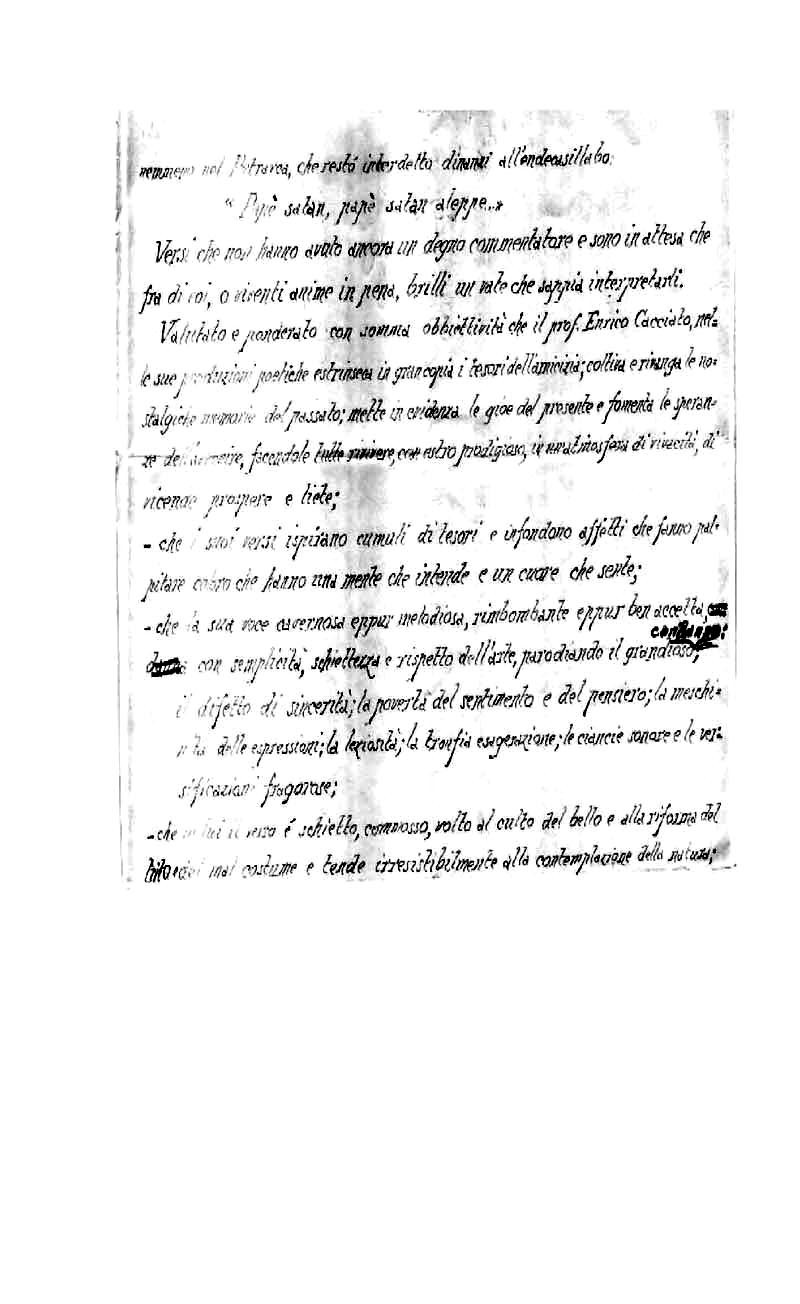 nemmeno nel Petrarca, che restò interdetto dinanzi all'endecasillabo:
" Papè satan, papè satan aleppe..»
Versi che non hanno avuto ancora un degno commentatore e sono in attesa che
fra di voi, o viventi anime in pena, brilli un vate che sappia interpretarli.
Valutato e ponderato con somma obbiettività che il prof. Enrico Cacciato, nel=
le sue produzioni poetiche estrinseca in gran copia i tesori dell'amicizia; coltiva e rivanga le no=
stalgiche memorie del passato; mette in evidenza le gioe del presente e fomenta le speran=
ze dell'avvenire, facendole tutte rivivere, con estro prodigioso, in un'atmosfera di vivacità, di
vicende prospere e liete;
- che i suoi versi ispirano cumuli di tesori e infondono affetti che fanno pal=
pitare coloro che hanno una mente che intende e un cuore che sente;
- che la sua voce cavernosa eppur melodiosa, rimbombante eppur ben accetta,
condanna:
con semplicità, schiettezza e rispetto dell'arte, parodiando il grandioso;
il difetto di sincerità; la povertà del sentimento e del pensiero; la meschi=
nità delle espressioni; la leziosità; la tronfia esagerazione; le ciancie sonore e le ver=
sificazioni fragorose;
- che in lui il verso é schietto, commosso, volto al culto del bello e alla riforma del
mal costume e tende irresistibilmente alla contemplazione della natura;